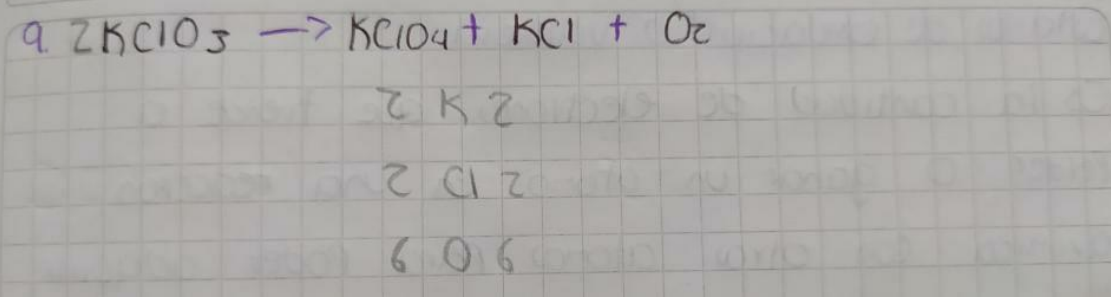 a. 2KClO3 → KClO4 + KCl + O2
2 K 2
2 Cl 2
6 O 6